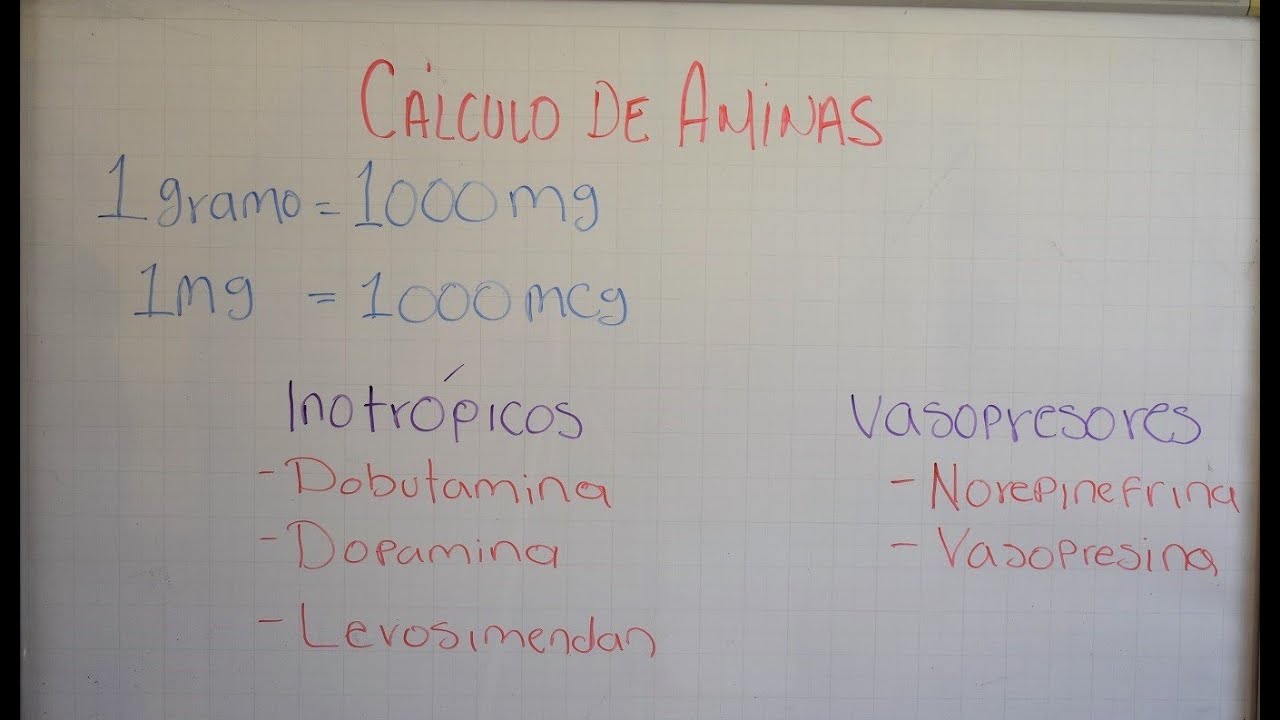 CÁLCULO DE AMINAS
1 gramo = 1000 mg
1 mg = 1000 mcg
Inotrópicos
- Dobutamina
- Dopamina
- Levosimendan
Vasopresores
- Norepinefrina
- Vasopresina